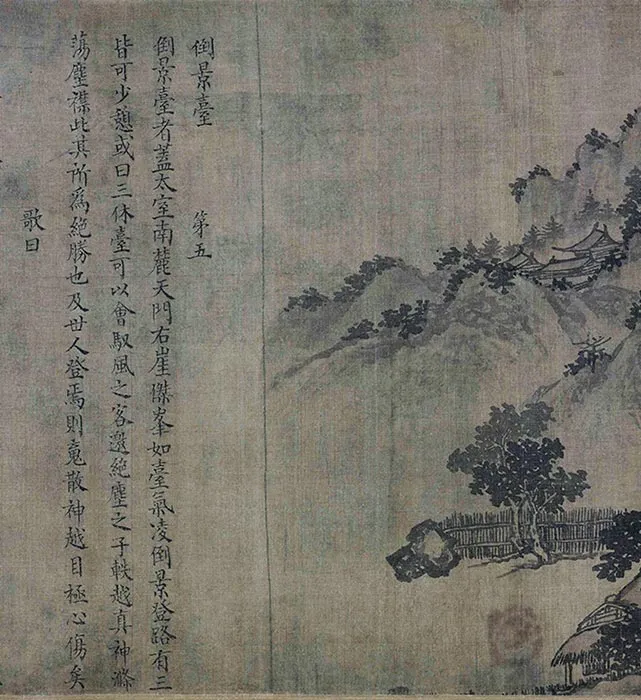 倒景臺 第五
倒景臺者蓋太室南麓天門右崖傑峯如臺氣凌倒景登路有三
皆可少憩或曰三休臺可以會馭風之客邀絶塵之子軼越真神滌
蕩塵襟此其所爲絶勝也及世人登焉則魂散神越目極心傷矣
歌曰